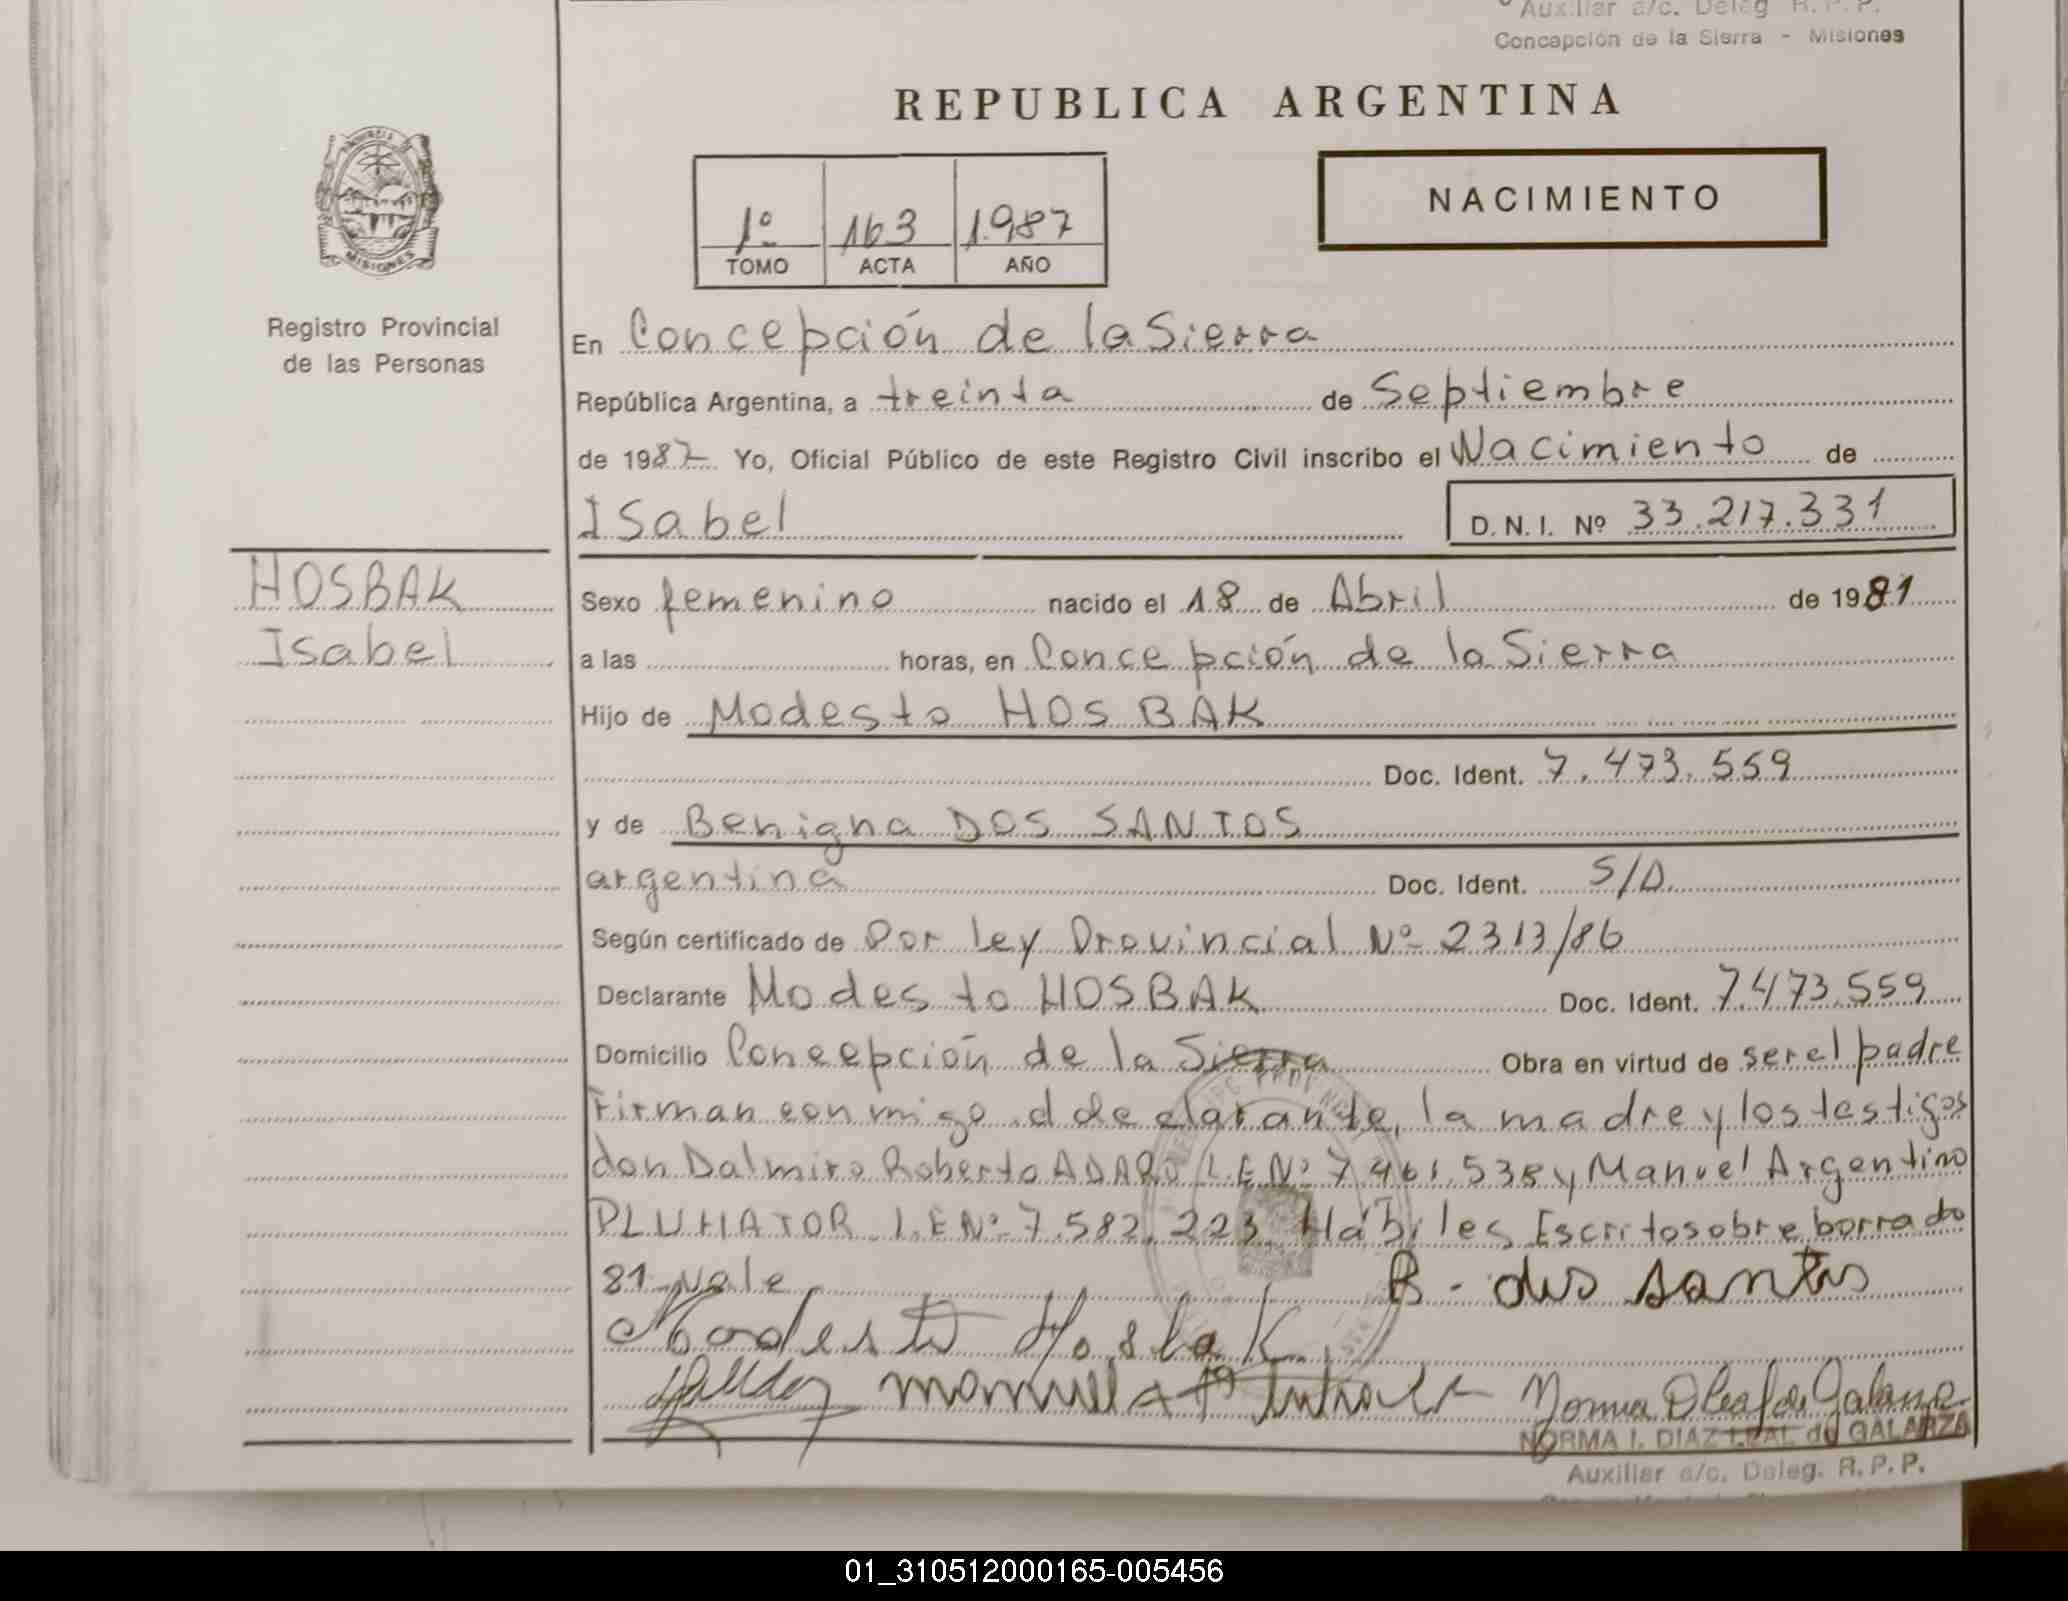 Auxiliar a/c. Deleg R. P. P.
Concepción de la Sierra - Misiones
REPUBLICA ARGENTINA
1º 163 1.987
TOMO ACTA AÑO
NACIMIENTO
MISIONES
Registro Provincial
de las Personas
En Concepción de la Sierra
República Argentina, a treinta de Septiembre
de 1987 Yo, Oficial Público de este Registro Civil inscribo el Nacimiento de
Isabel D. N. I. Nº 33.217.331
HOSBAK
Isabel
Sexo femenino nacido el 18 de Abril de 1981
a las horas, en Concepción de la Sierra
Hijo de Modesto HOSBAK
Doc. Ident. 7.473.559
y de Benigna DOS SANTOS
argentina Doc. Ident. S/D
Según certificado de Por Ley Provincial Nº 2313/86
Declarante Modesto HOSBAK Doc. Ident. 7.473.559
Domicilio Concepción de la Sierra Obra en virtud de ser el padre
Firman conmigo el declarante, la madre y los testigos
don Dalmiro Roberto ADARO L.E.Nº 7.461.535 y Manuel Argentino
PLUHATOR L.E Nº 7.582.223 Hábiles Escrito sobre borrado
81-Vale B. dos santos
Modesto Hosbak
NORMA I. DIAZ LEAL de GALARZA
Auxiliar a/c. Deleg. R. P. P.
01_310512000165-005456